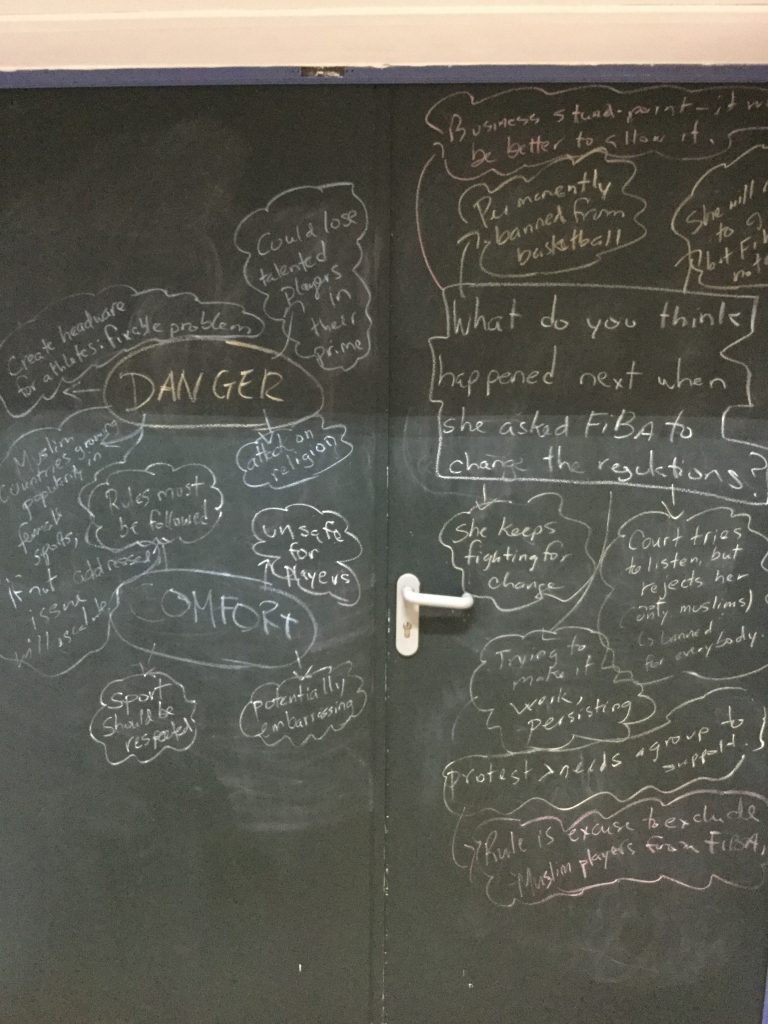 Could lose
talented
players
in
their
prime
Create headware
for athletes: fixable problem
DANGER
attack on
religion
Muslim
countries growing
popularity in
female
sports,
if not addressed
issue
will
Rules must
be followed
unsafe
for
players
COMFORT
Sport
should be
respected
potentially
embarrassing
Business stand-point - it
be better to allow it.
Permanently
banned from
basketball
She will
to
but
not
What do you think
happened next when
she asked FiBA to
change the regulations?
She keeps
fighting for
change
Court tries
to listen, but
rejects her
(only muslims)
banned
for everybody.
Trying to
make it
work,
persisting
protest > needs a group to
support.
Rule is excuse to exclude
Muslim players from FIBA,